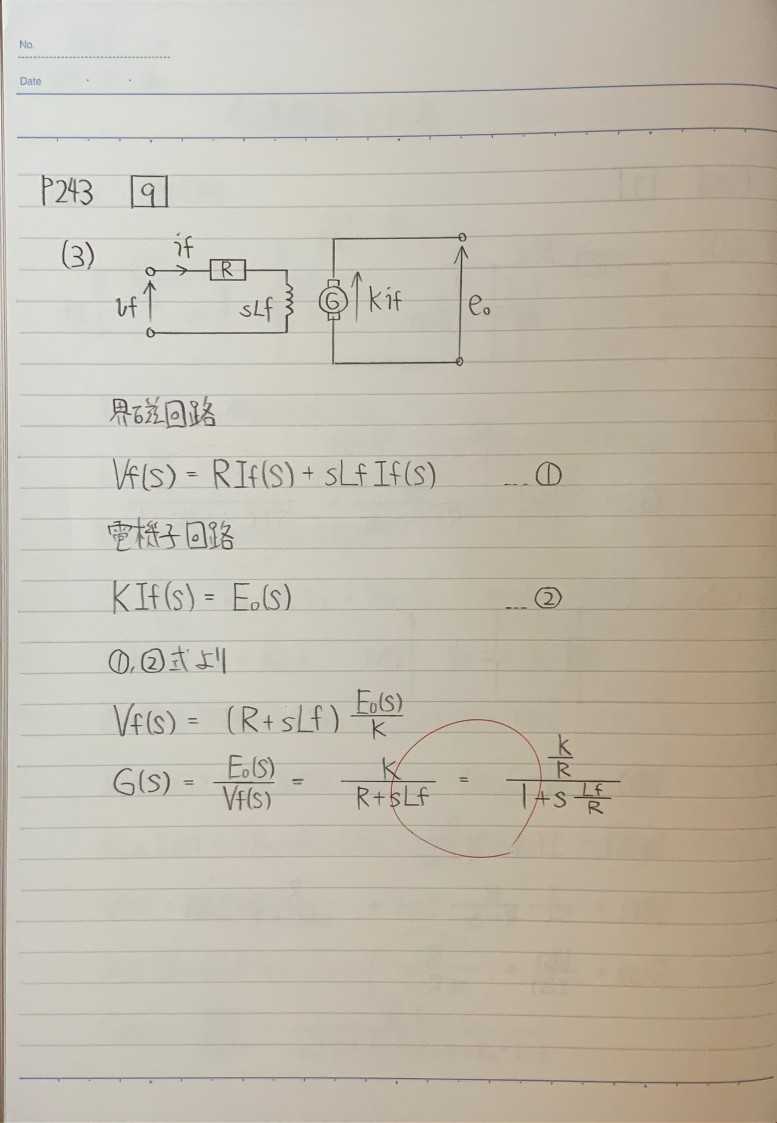 No.
Date
P243 9
(3) if R
vf sLf G Kif e₀
界磁回路
Vf(s) = RIf(s) + sLf If(s) ... ①
電機子回路
KIf(s) = E₀(s) ... ②
①,②式より
Vf(s) = (R+sLf) E₀(s)/K
G(s) = E₀(s)/Vf(s) = K/(R+sLf) = (K/R)/(1+s Lf/R)